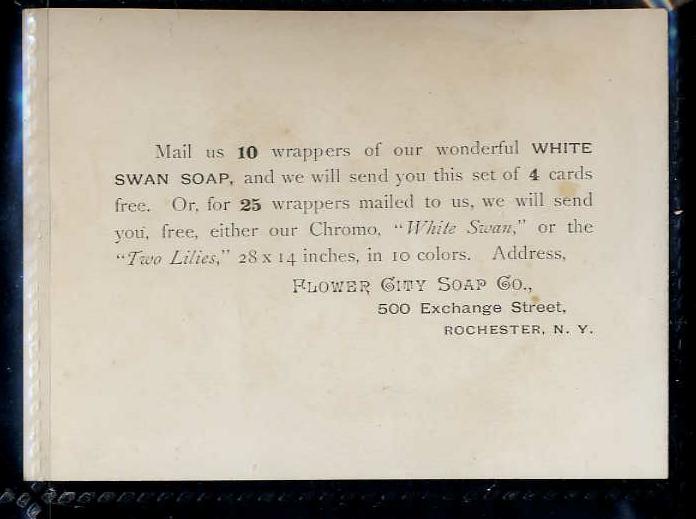 Mail us 10 wrappers of our wonderful WHITE
SWAN SOAP, and we will send you this set of 4 cards
free. Or, for 25 wrappers mailed to us, we will send
you, free, either our Chromo, "White Swan," or the
"Two Lilies," 28 x 14 inches, in 10 colors. Address,
FLOWER CITY SOAP CO.,
500 Exchange Street,
ROCHESTER, N. Y.